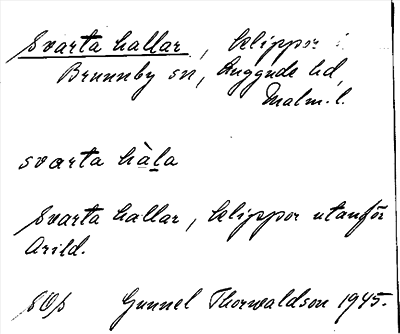 Svarta hallar, klippor i
Brunnby sn, Luggude hd,
Malm. l.
svarta hàla
Svarta hallar, klippor utanför
Arild.
SOS Gunnel Thorwaldson 1945.